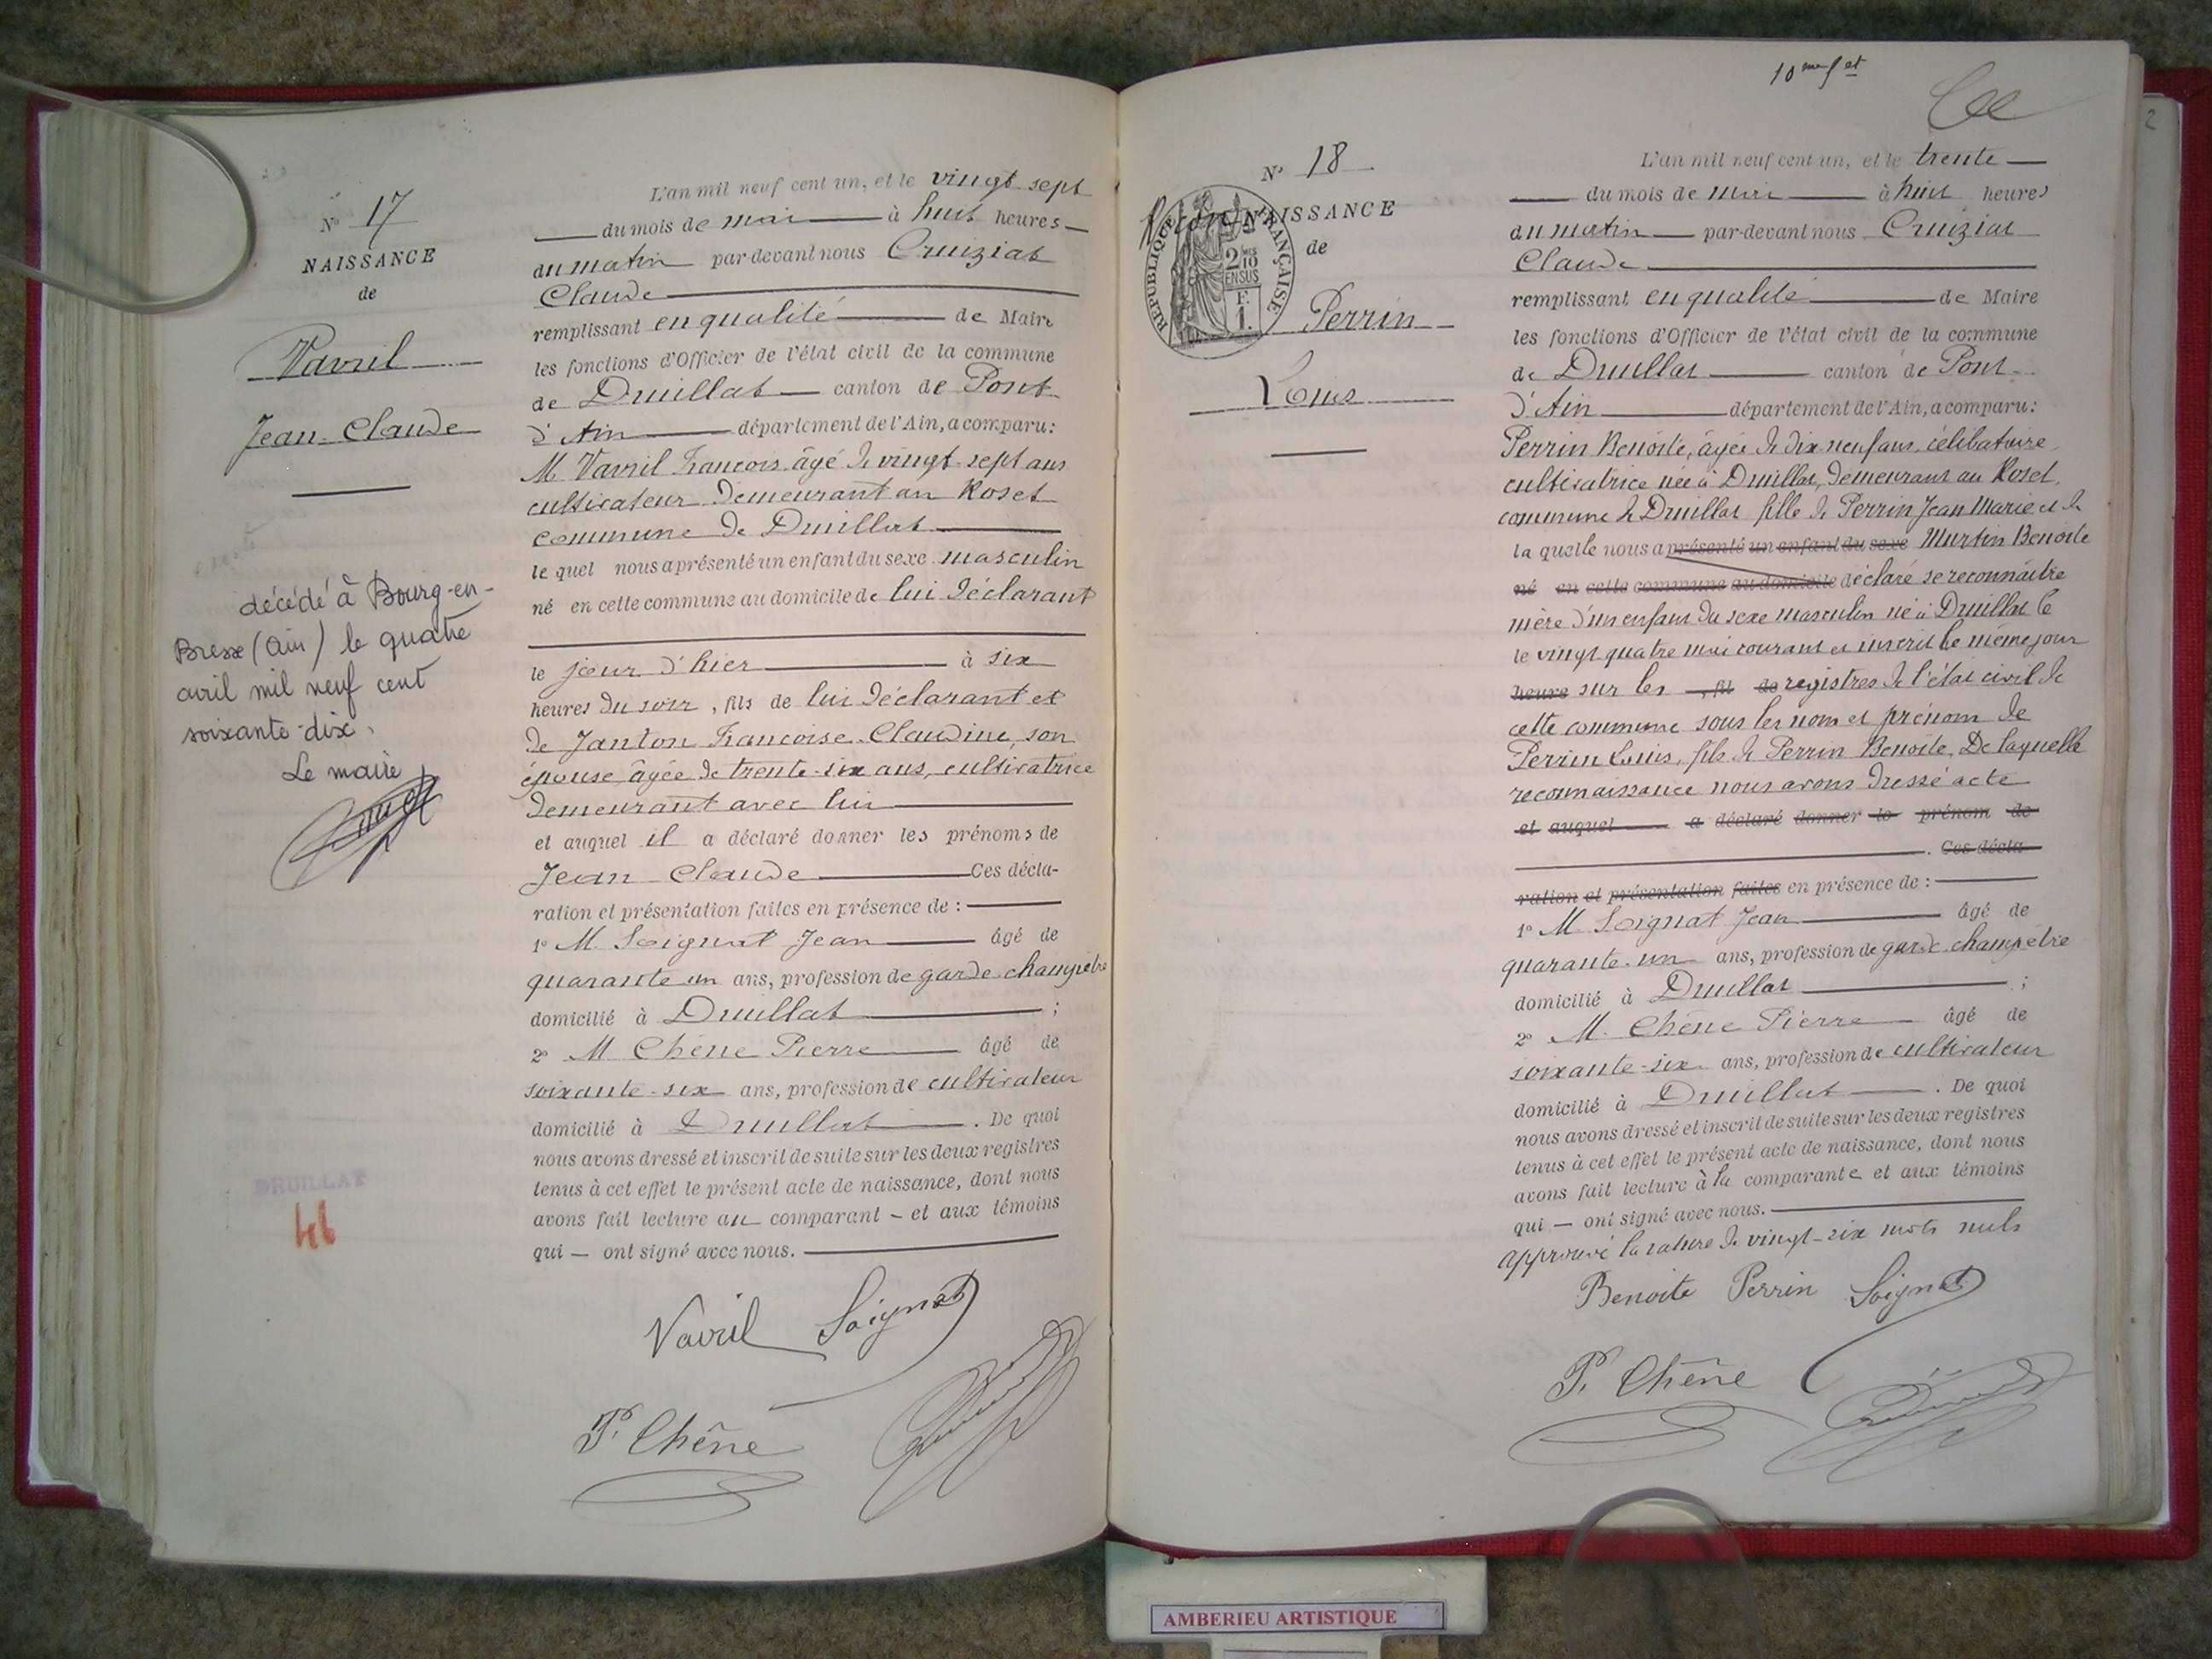 N° 17
NAISSANCE
de
Vavril
Jean Claude
décédé à Bourg-en-
Bresse (Ain) le quatre
avril mil neuf cent
soixante-dix.
Le maire
DRUILLAT
L'an mil neuf cent un, et le vingt sept
du mois de mai à huit heures
du matin par-devant nous Cruiziat
Claude
remplissant en qualité de Maire
les fonctions d'Officier de l'état civil de la commune
de Druillat canton de Pont
d'Ain département de l'Ain, a comparu:
M. Vavril François âgé de vingt-sept ans
cultivateur demeurant au Roset
commune de Druillat
le quel nous a présenté un enfant du sexe masculin
né en cette commune au domicile de lui déclarant
le jour d'hier à six
heures du soir, fils de lui déclarant et
de Janton Françoise Claudine, son
épouse, âgée de trente-six ans, cultivatrice
demeurant avec lui
et auquel il a déclaré donner les prénoms de
Jean Claude Ces décla-
ration et présentation faites en présence de :
1° M. Soignat Jean âgé de
quarante un ans, profession de garde champêtre
domicilié à Druillat ;
2° M Chêne Pierre âgé de
soixante-six ans, profession de cultivateur
domicilié à Druillat. De quoi
nous avons dressé et inscrit de suite sur les deux registres
tenus à cet effet le présent acte de naissance, dont nous
avons fait lecture au comparant – et aux témoins
qui — ont signé avec nous.
Vavril Soignat
P. Chêne
N° 18
NAISSANCE
de
RÉPUBLIQUE FRANÇAISE
Perrin
Louis
L'an mil neuf cent un, et le trente
du mois de mai à huit heures
du matin par-devant nous Cruiziat
Claude
remplissant en qualité de Maire
les fonctions d'Officier de l'état civil de la commune
de Druillat canton de Pont
d'Ain département de l'Ain, a comparu:
Perrin Benoîte, âgée de dix neuf ans, célibataire
cultivatrice née à Druillat, demeurant au Roset,
commune de Druillat fille de Perrin Jean Marie et de
la quelle nous a présenté un enfant du sexe Martin Benoîte
né en cette commune au domicile déclaré se reconnaître
mère d'un enfant du sexe masculin né à Druillat le
le vingt quatre mai courant et inscrit le même jour
heure sur les , fil de registres de l'état civil de
cette commune sous les nom et prénom de
Perrin Louis, fils de Perrin Benoîte. De laquelle
reconnaissance nous avons dressé acte
et auquel a déclaré donner le prénom de
. Ces décla-
ration et présentation faites en présence de :
1° M. Soignat Jean âgé de
quarante-un ans, profession de garde champêtre
domicilié à Druillat ;
2° M. Chêne Pierre âgé de
soixante-six ans, profession de cultivateur
domicilié à Druillat. De quoi
nous avons dressé et inscrit de suite sur les deux registres
tenus à cet effet le présent acte de naissance, dont nous
avons fait lecture à la comparante et aux témoins
qui — ont signé avec nous.
approuvé la rature de vingt-six mots nuls
Benoite Perrin Soignat
P. Chêne
AMBERIEU ARTISTIQUE